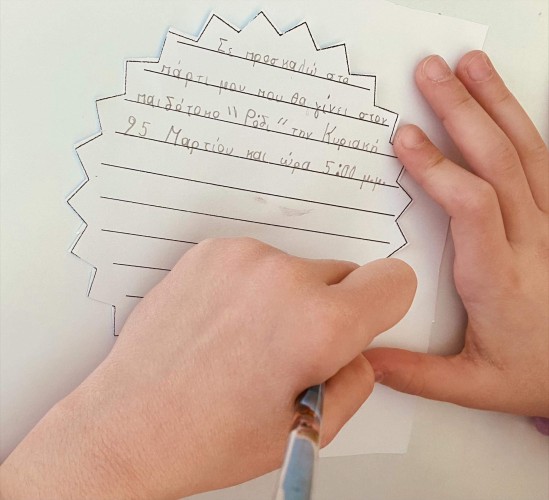 Σε προσκαλώ στο
πάρτι μου που θα γίνει στον
παιδότοπο "Ρόδι" την Κυριακή
25 Μαρτίου και ώρα 5:00 μ.μ.